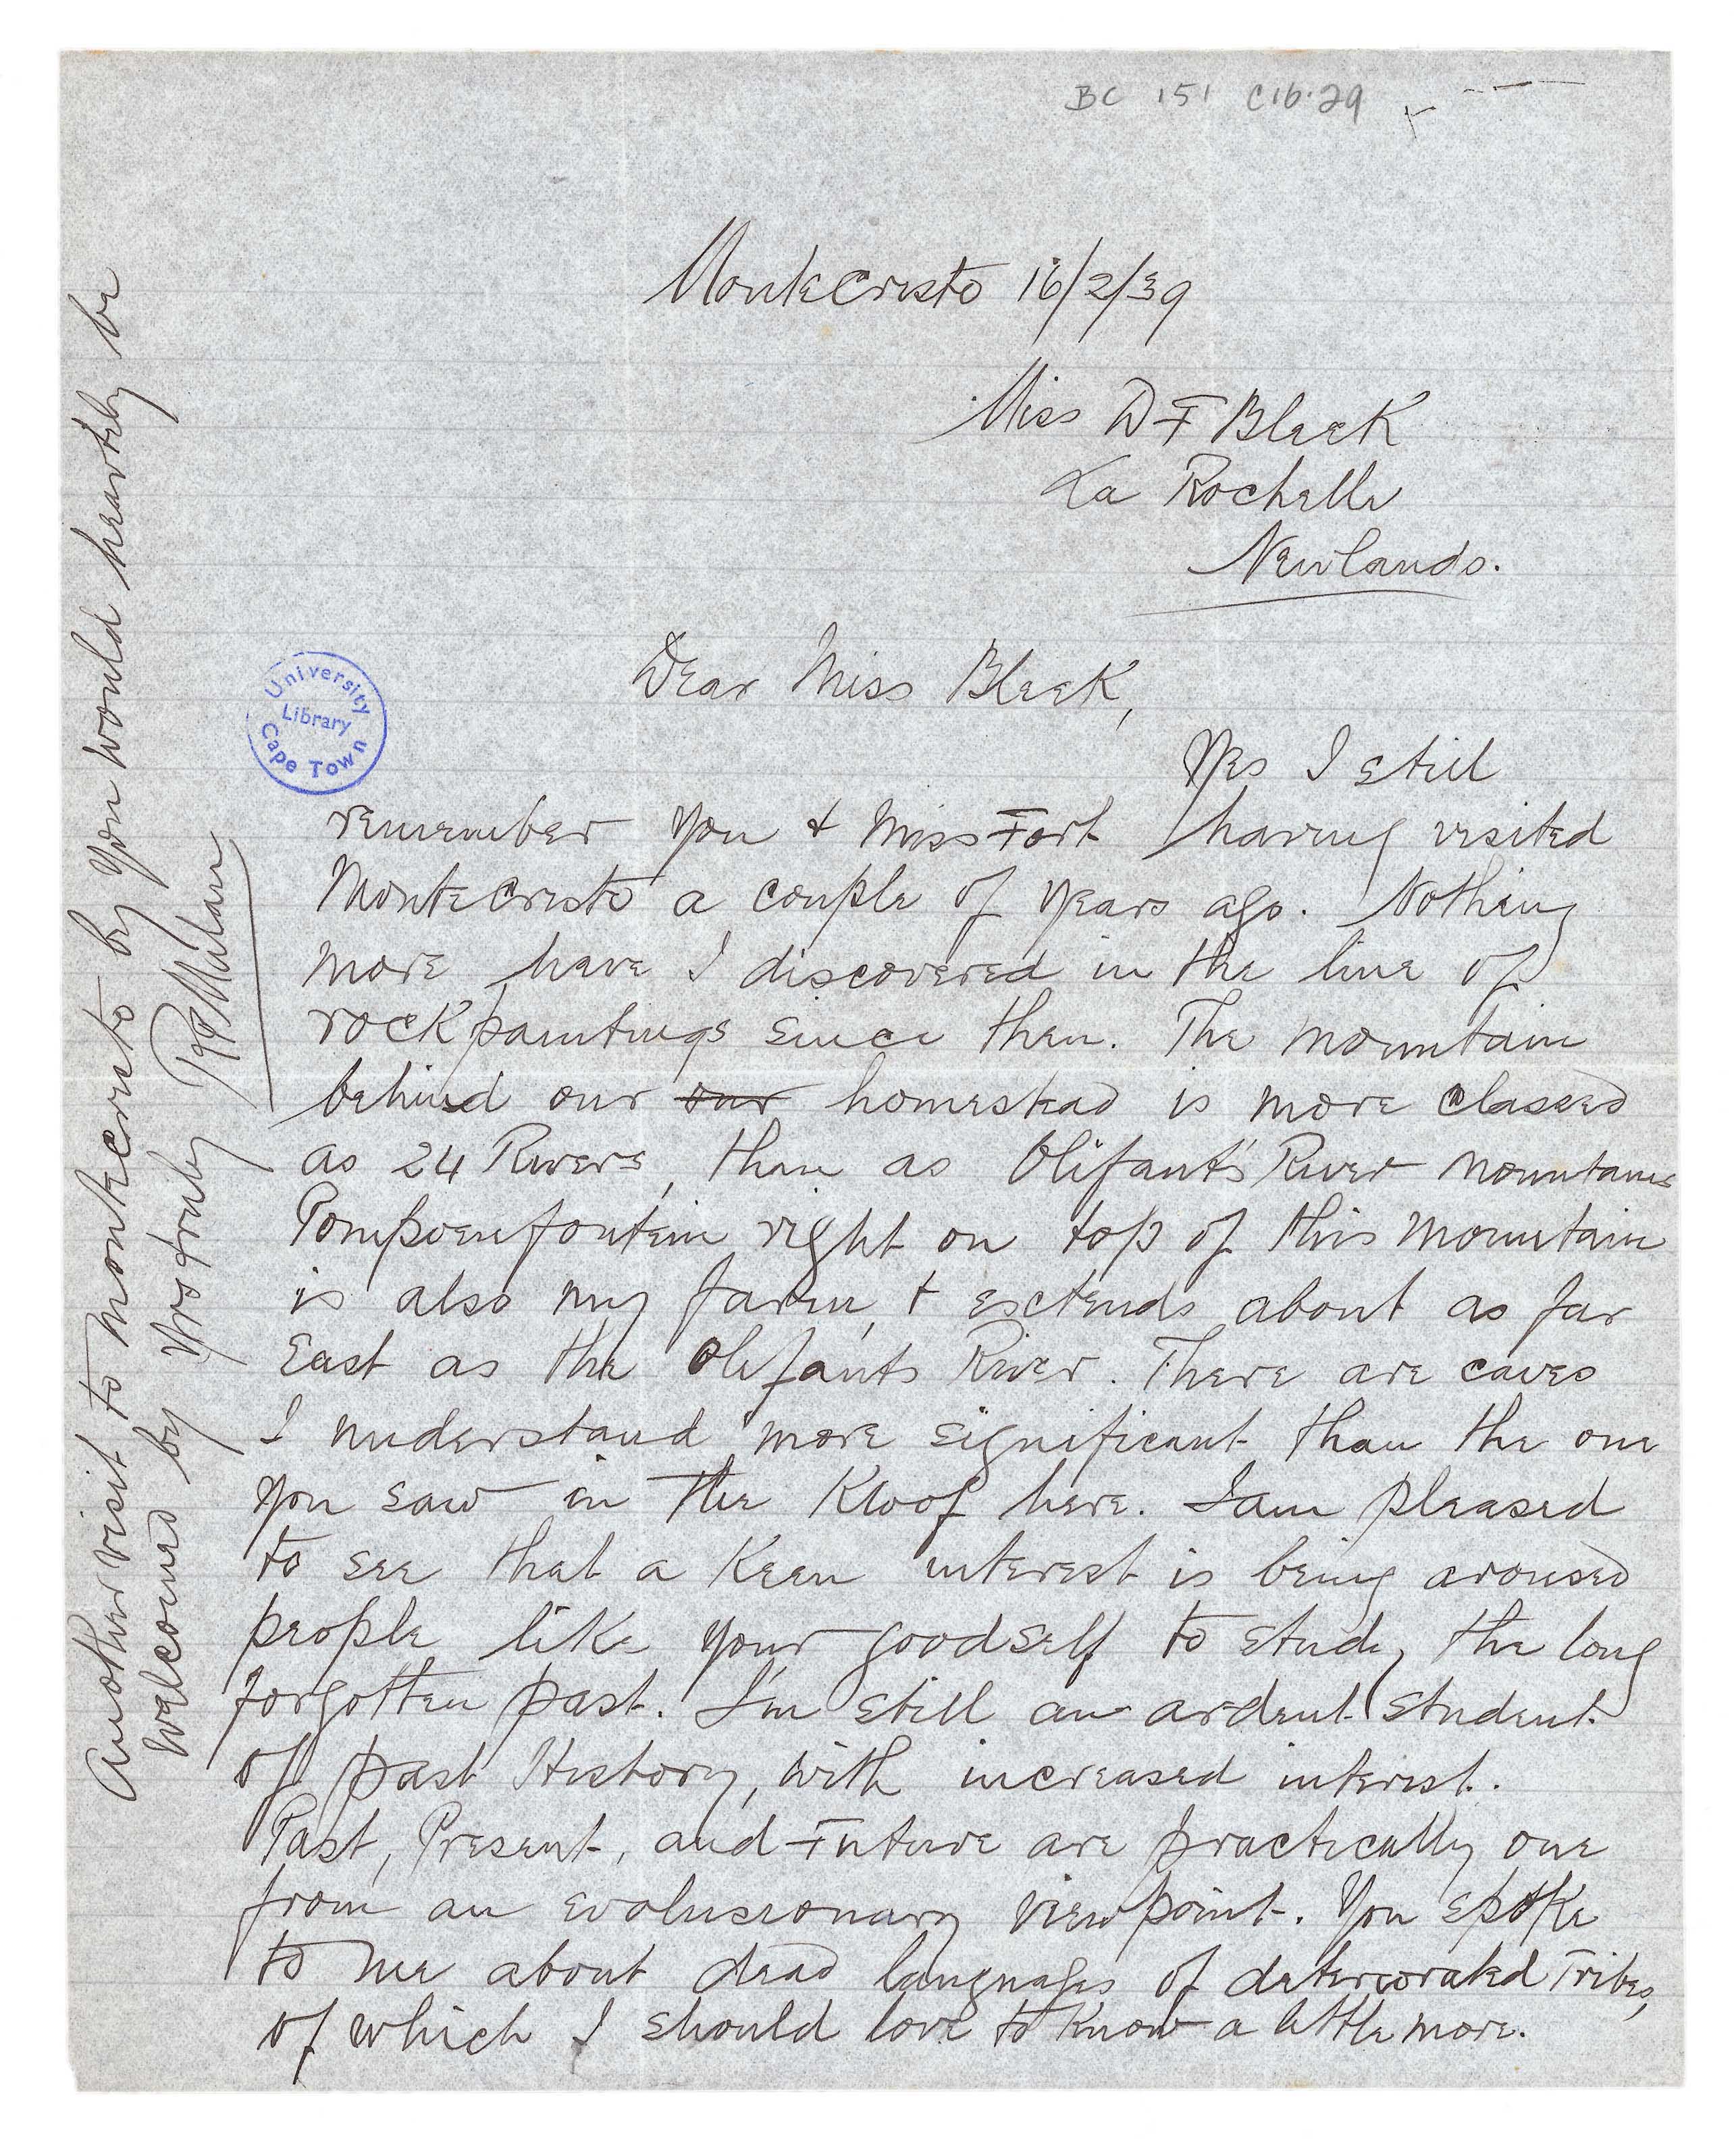 BC 151 C16.29
MonteCristo 16/2/39
Miss D F Bleek
La Rochelle
Newlands.
Dear Miss Bleek,
University
Library
Cape Town
Yes I still
remember you & Miss Fort having visited
MonteCristo a couple of years ago. Nothing
more have I discovered in the line of
rock paintings since then. The mountain
behind our our homestead is more classed
as 24 Rivers, than as Olifants River Mountains
Pompoenfontein right on top of this mountain
is also my farm, & extends about as far
East as the Olifants River. There are caves
I understand more significant than the one
you saw in the Kloof here. I am pleased
to see that a keen interest is being aroused
people like your goodself to study the long
forgotten past. I'm still an ardent student
of past History, with increased interest.
Past, Present, and Future are practically one
from an evolusionary viewpoint. You spoke
to me about dead languages of detereorated Tribes,
of which I should love to know a little more.
Another visit to Montecristo by you would heartily be
welcomed by Yrs truly